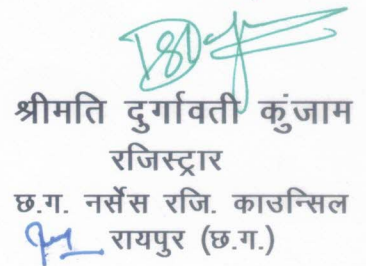 श्रीमति दुर्गावती कुंजाम
रजिस्ट्रार
छ.ग. नर्सेस रजि. काउन्सिल
रायपुर (छ.ग.)